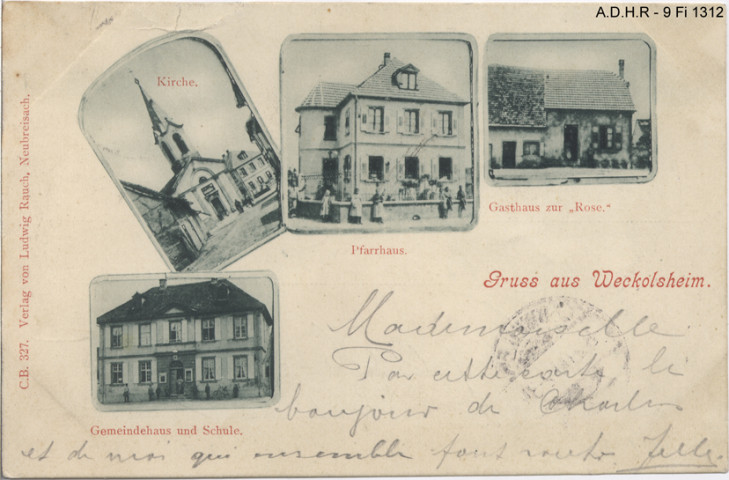 A.D.H.R - 9 Fi 1312
Kirche.
Pfarrhaus.
Gasthaus zur „Rose.“
Gemeindehaus und Schule.
Gruss aus Weckolsheim.
C.B. 327. Verlag von Ludwig Rauch, Neubreisach.
Mademoiselle
Par cette carte, le
bonjour de
et de moi qui ensemble font route